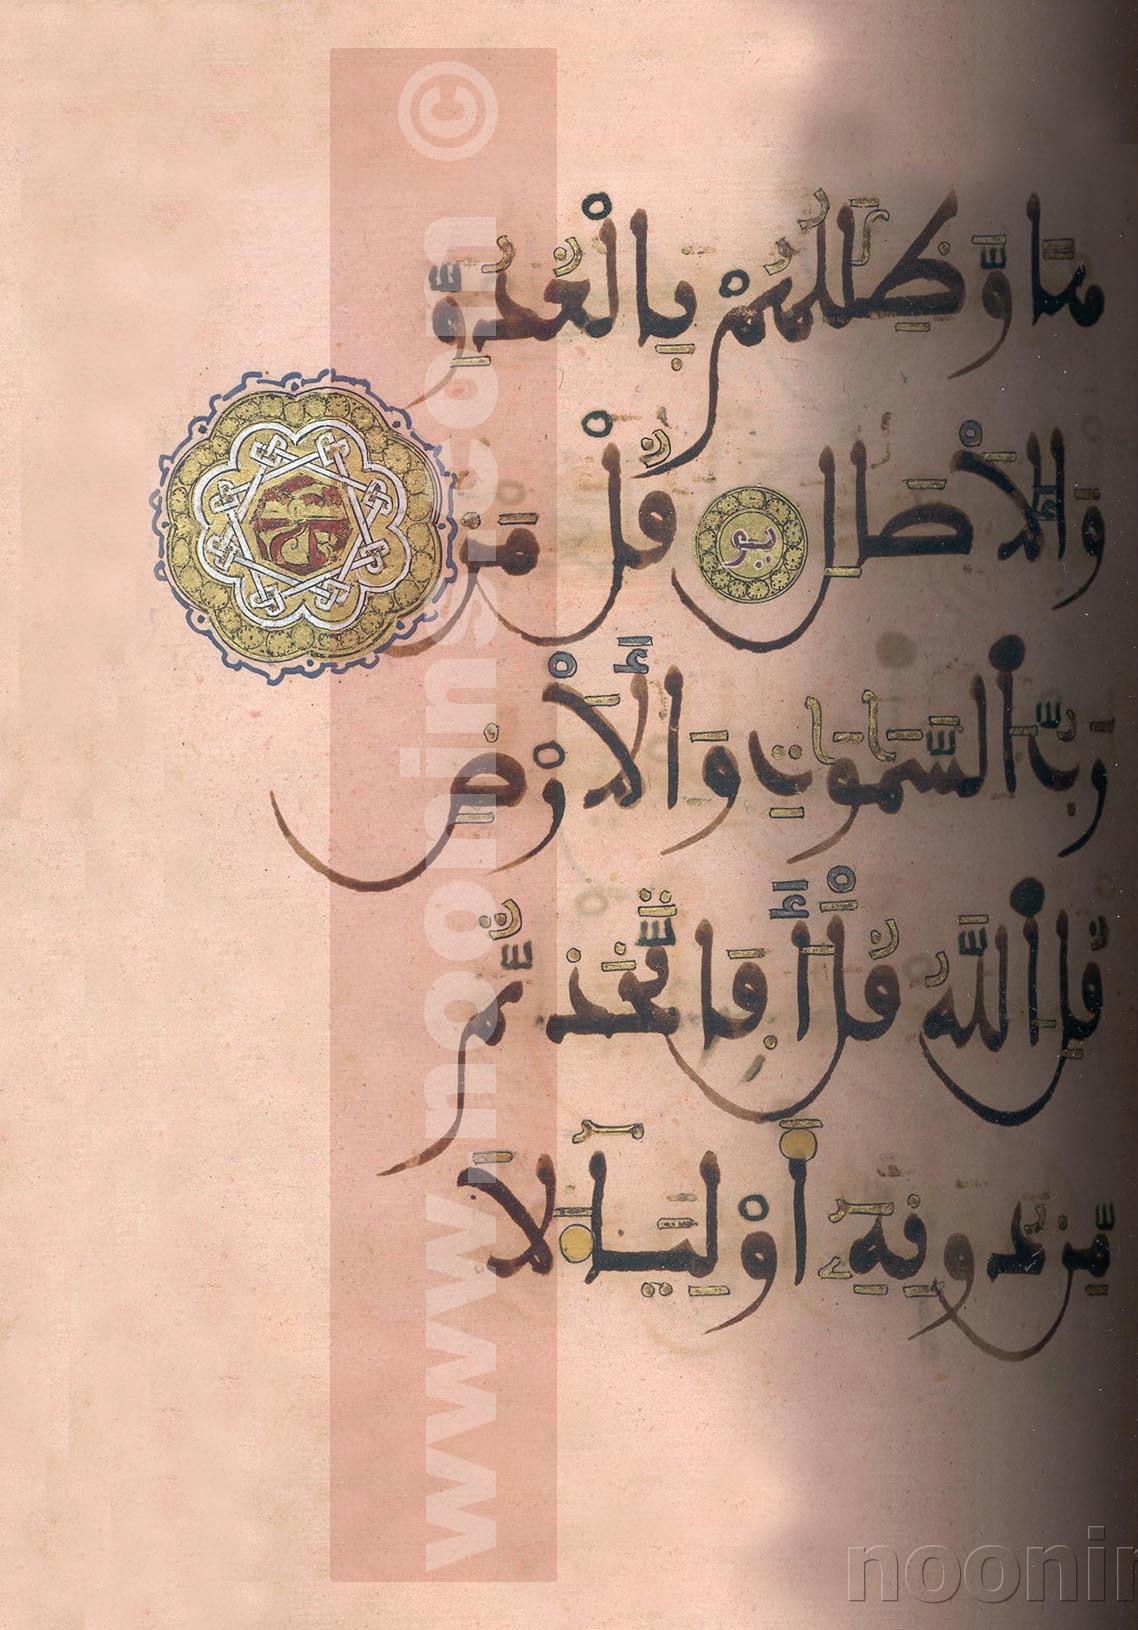 هًا وَظِلَٰلُهُم بِالْغُدُوِّ
وَالْأَصَالِ قُلْ مَن
رَّبُّ السَّمَٰوَٰتِ وَالْأَرْضِ
قُلِ اللَّهُ قُلْ أَفَاتَّخَذتُّم
مِّن دُونِهِ أَوْلِيَاءَ لَا
سجدة
www.noonins.com ©
noonin